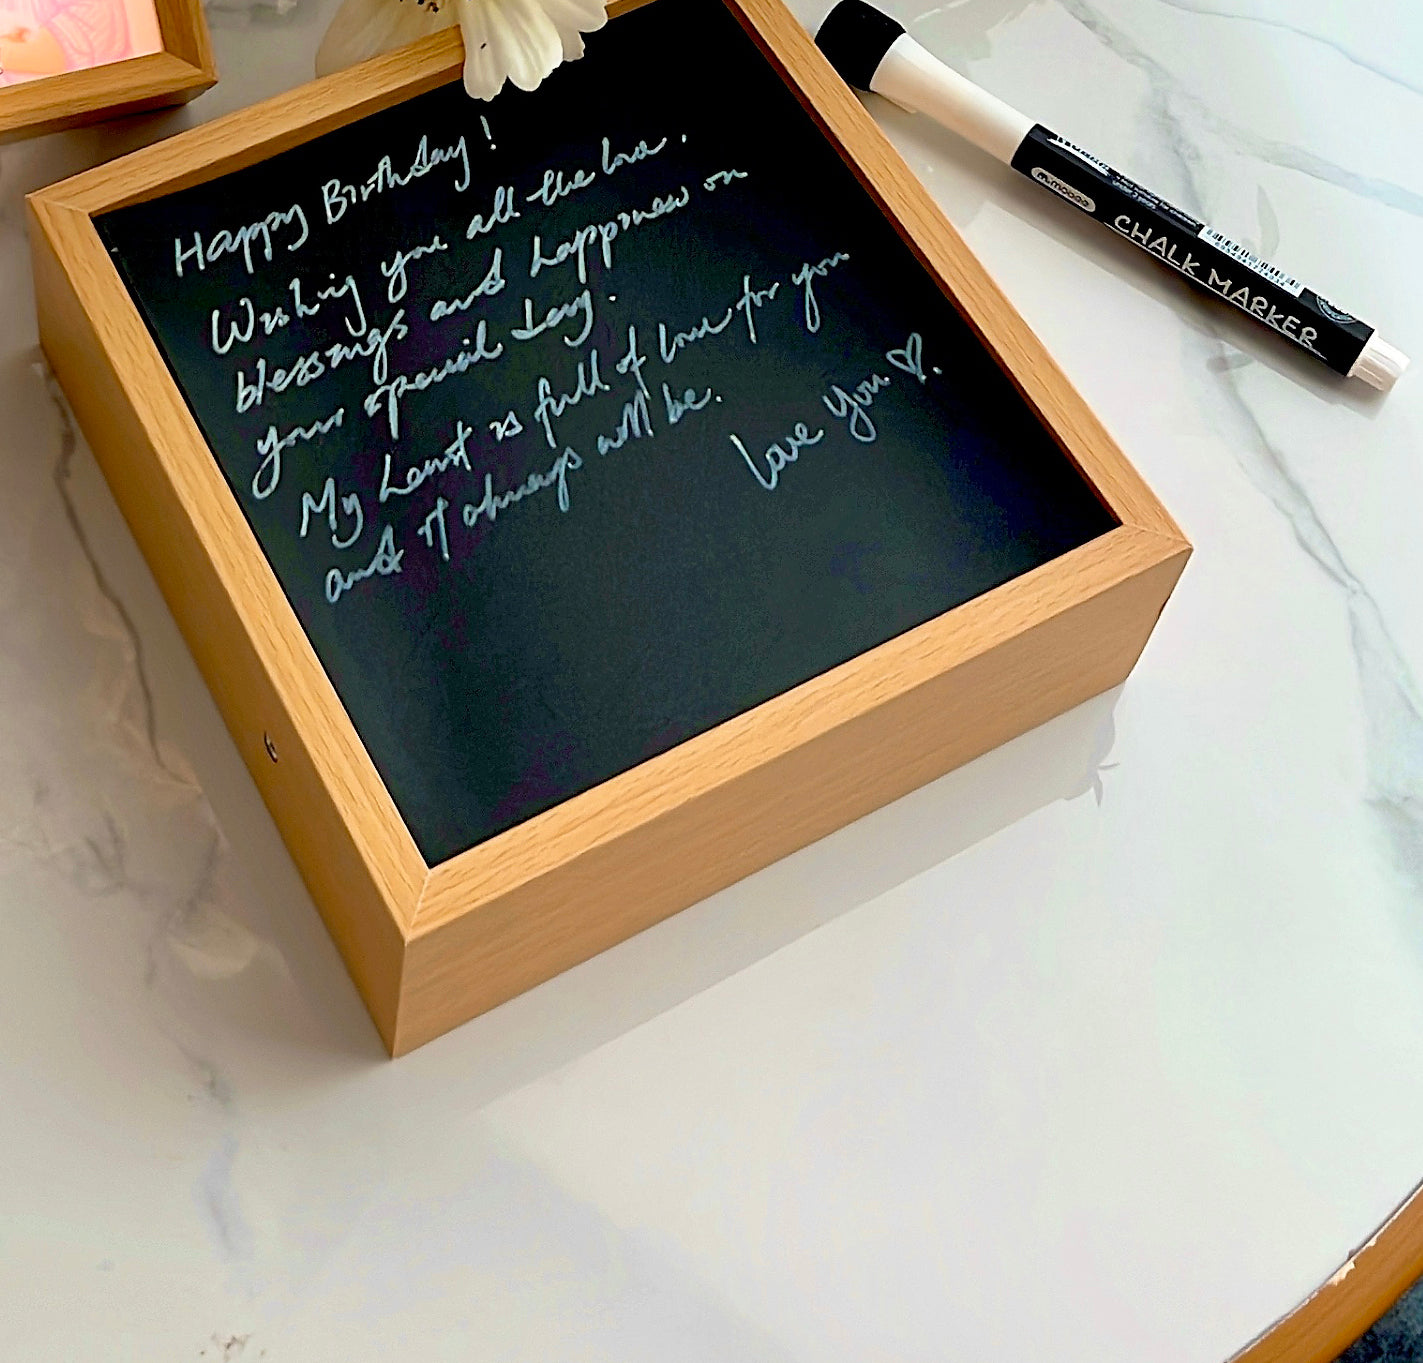 Happy Birthday!
Wishing you all the love.
blessings and happiness on
your special day.
My heart is full of love for you
and it always will be.
Love You ♡.
CHALK MARKER